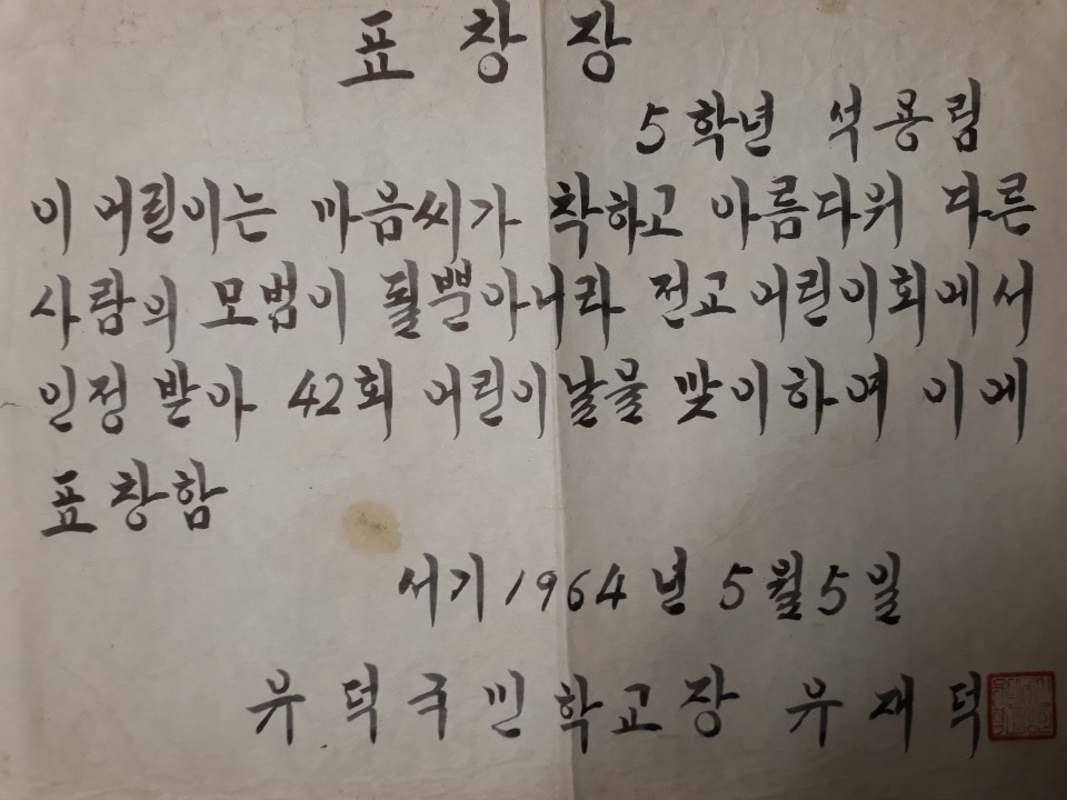 표창장
5학년 석용림
이 어린이는 마음씨가 착하고 아름다워 다른
사람의 모범이 될뿐아니라 전교 어린이회에서
인정 받아 42회 어린이날을 맞이하여 이에
표창함
서기 1964년 5월 5일
유덕국민학교장 유재덕